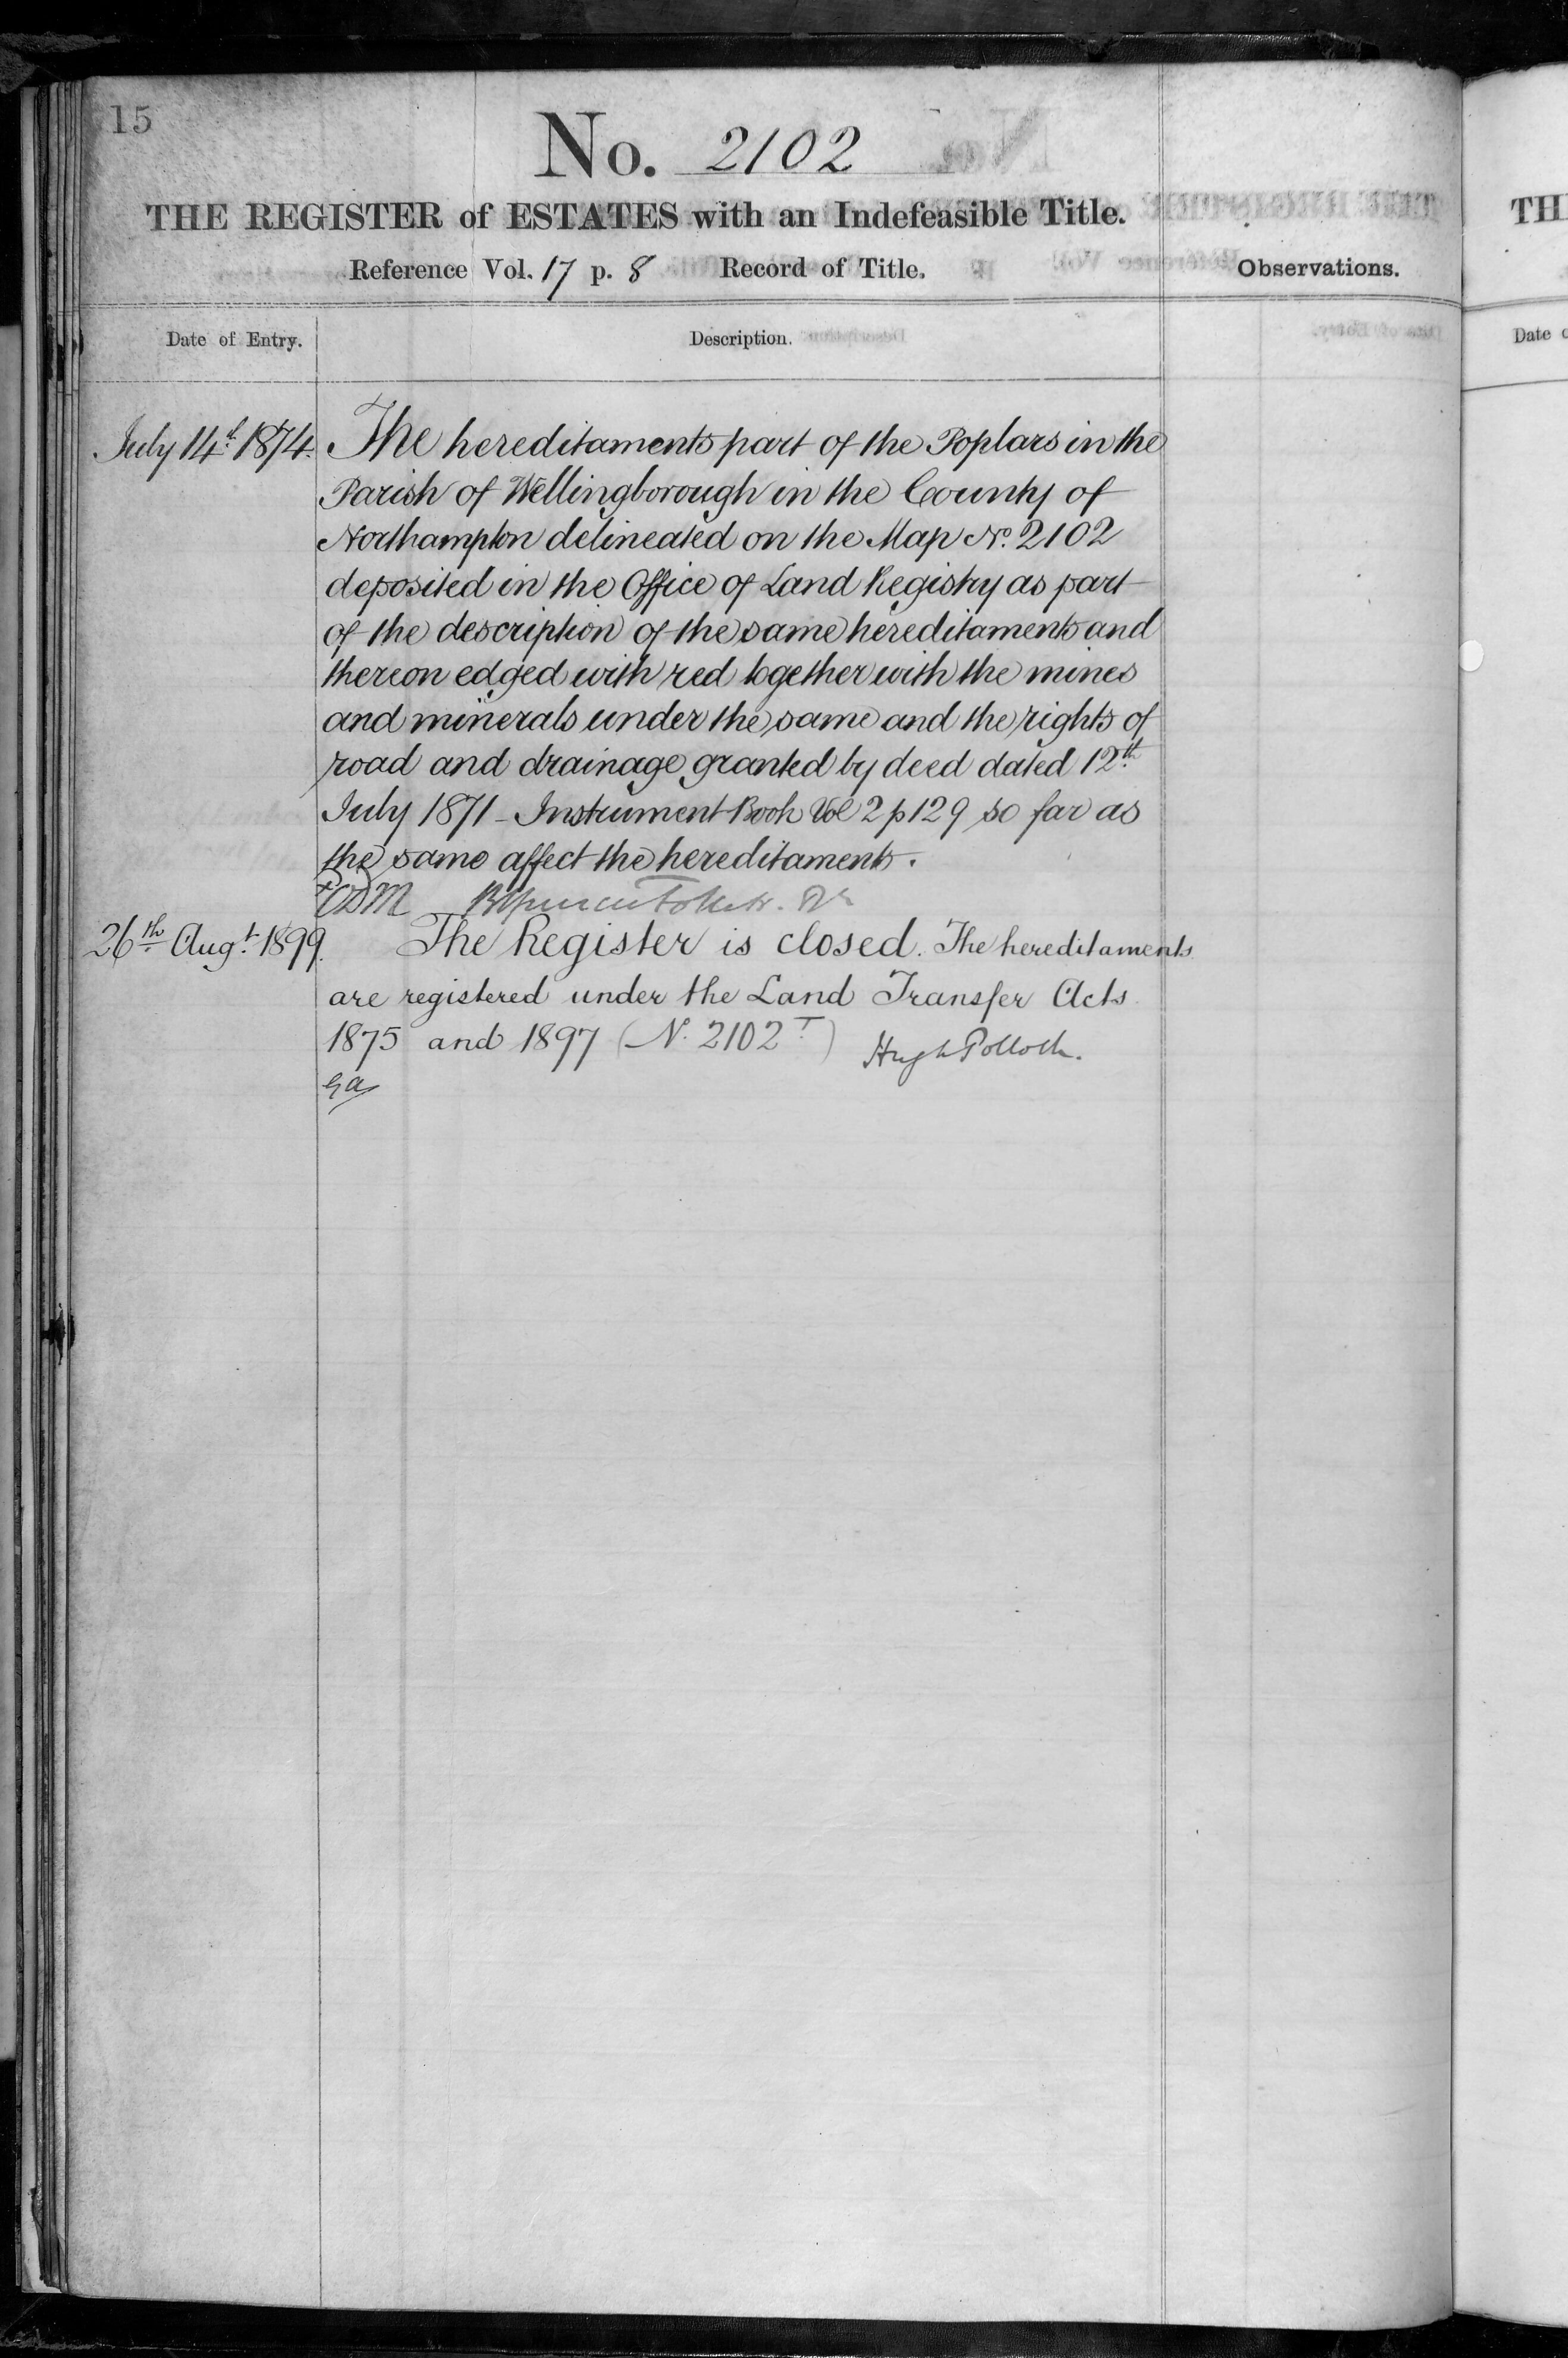 15
No. 2102
THE REGISTER of ESTATES with an Indefeasible Title.
Reference Vol. 17 p. 8 Record of Title.
Observations.
Date of Entry.
Description.
July 14th 1874. The hereditaments part of the Poplars in the
Parish of Wellingborough in the County of
Northampton delineated on the Map No. 2102
deposited in the Office of Land Registry as part
of the description of the same hereditaments and
thereon edged with red together with the mines
and minerals under the same and the rights of
road and drainage granted by deed dated 12th
July 1871 - Instrument Book Vol 2 p 129 so far as
the same affect the hereditaments.
26th Augt. 1899. The Register is closed. The hereditaments
are registered under the Land Transfer Acts
1875 and 1897 (No. 2102 T) Hugh Pollock.
TH
Date